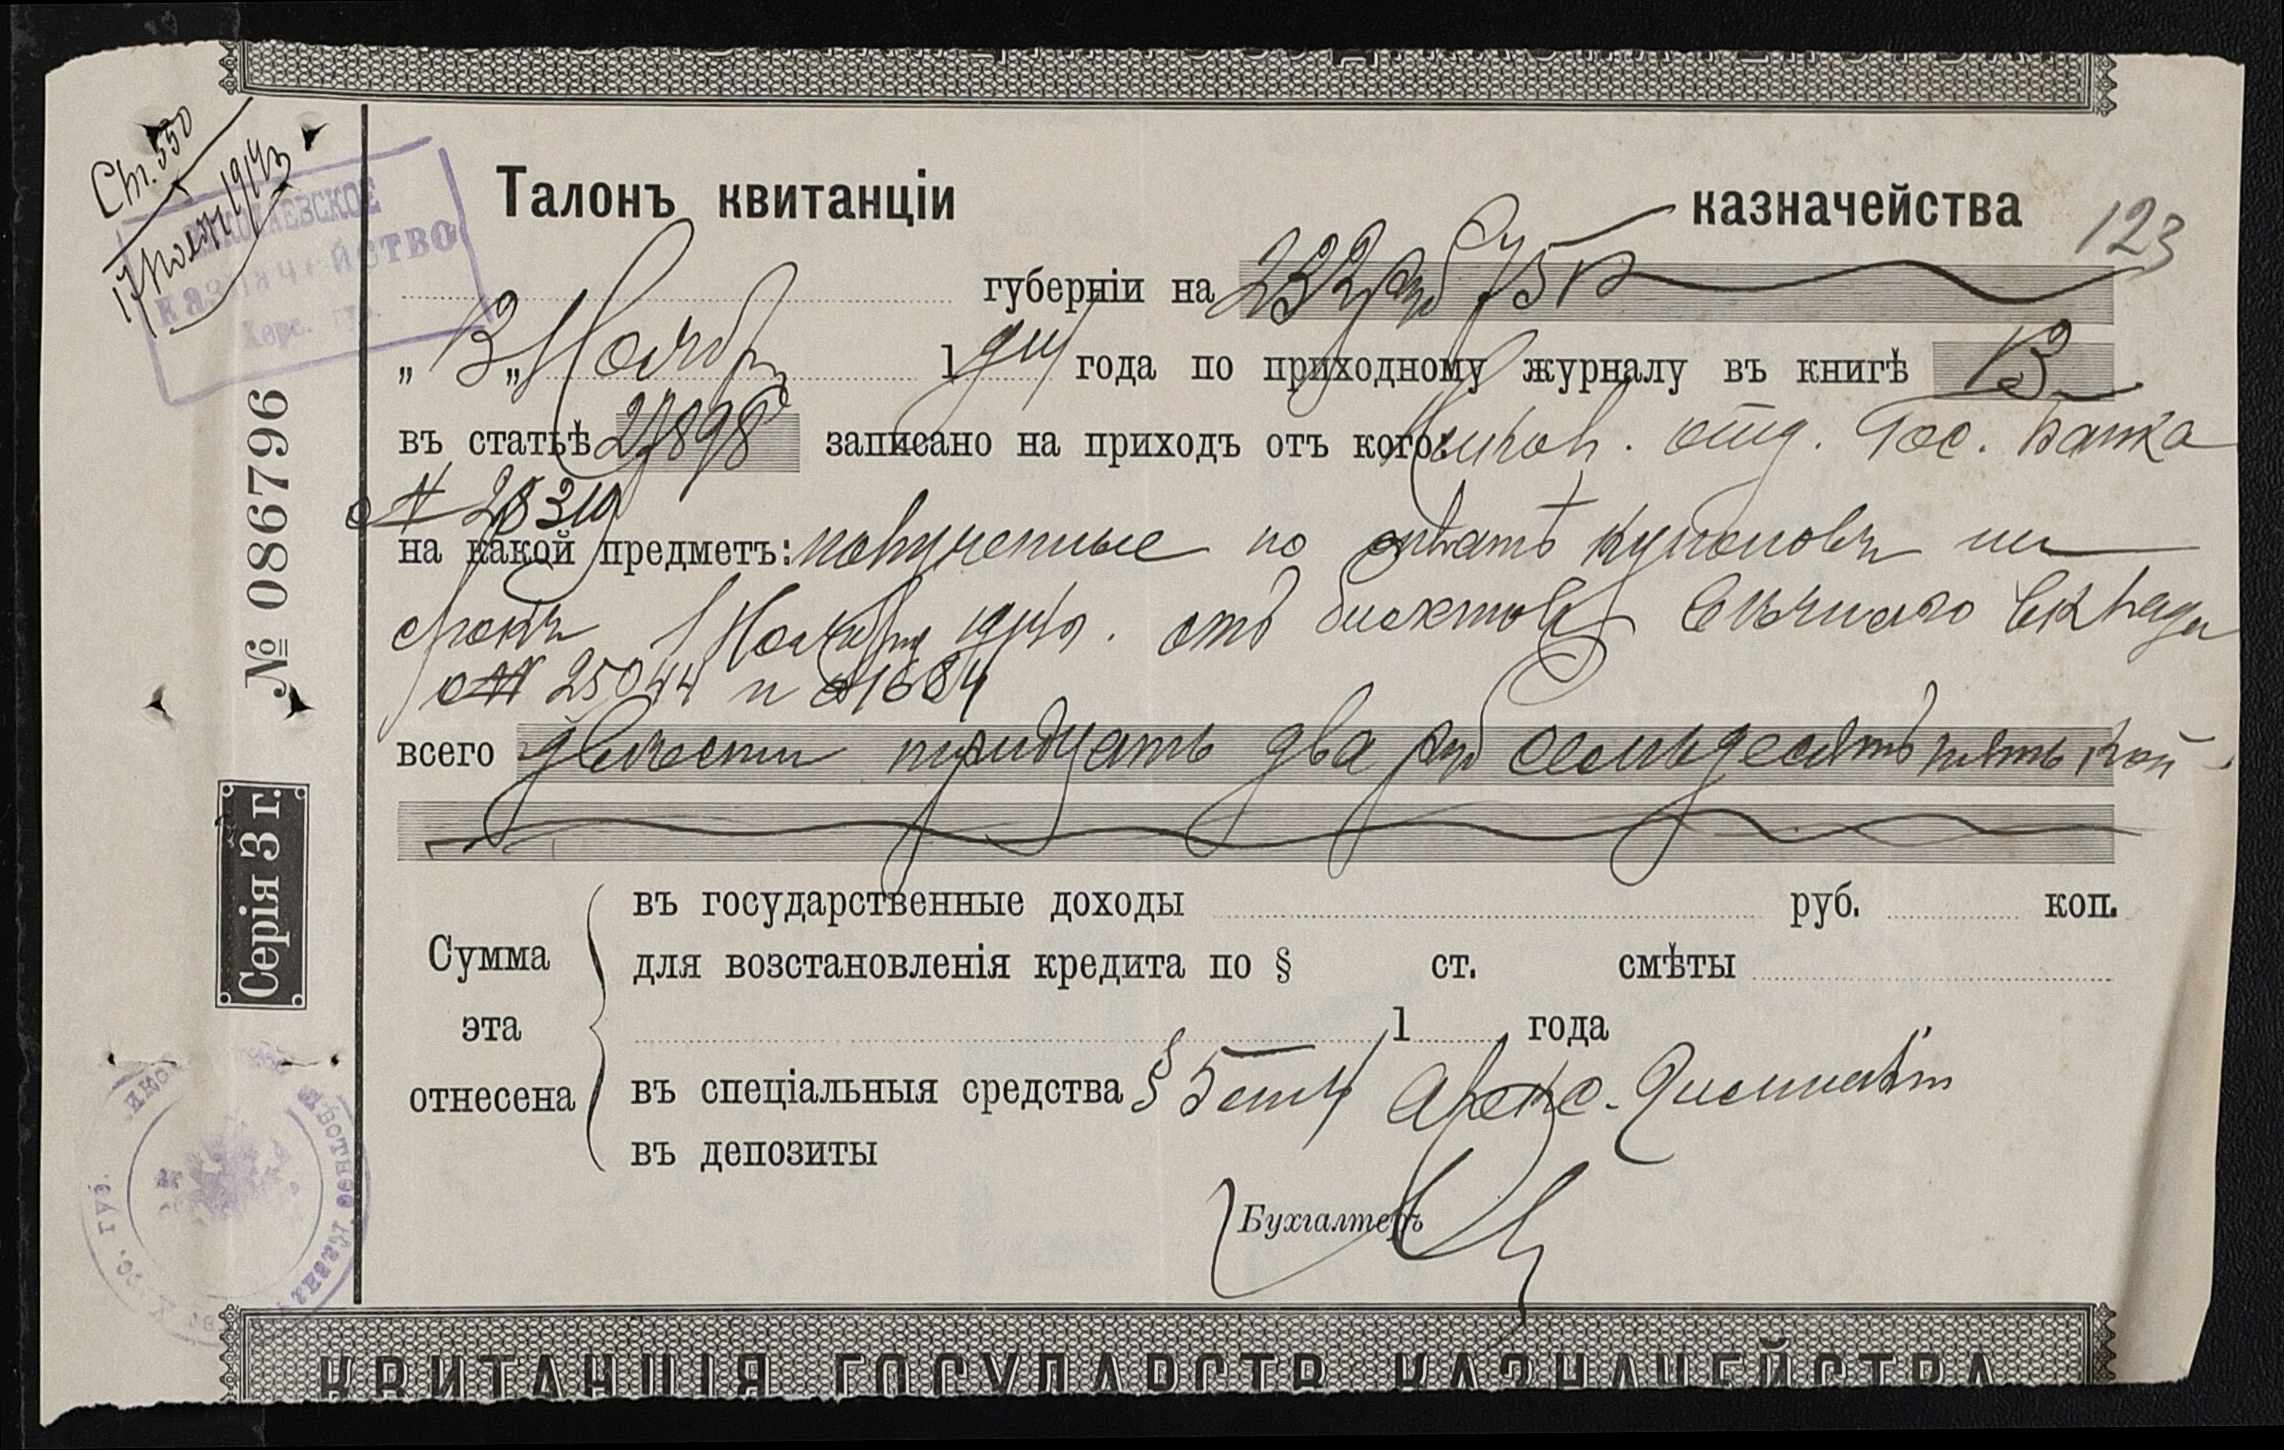 Ст. 550
НИКОЛАЕВСКОЕ
КАЗНАЧЕЙСТВО
Херс. губ.
Талонъ квитанціи казначейства
123
губерніи на 232 руб 75 к
„ 3 „ Ноября 1914 года по приходному журналу въ книгѣ В
въ статьѣ 27898 записано на приходъ отъ кого: отд. Гос. Банка
на какой предметъ: полученные по оплатѣ купоновъ на
срокъ 1 Ноября 1914 г. отъ билетовъ вѣчнаго вклада
25044 и 1684
всего двѣсти тридцать два руб семьдесятъ пять коп.
Сумма эта отнесена
въ государственные доходы руб. коп.
для возстановленія кредита по § ст. смѣты
1 года
въ спеціальныя средства § 5 ст 4
въ депозиты
Бухгалтеръ
№ 086796
Серія 3 г.
КВИТАНЦІЯ ГОСУДАРСТВ. КАЗНАЧЕЙСТВА